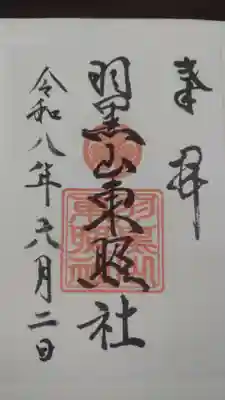 奉拝
羽黒山東照社
令和八年六月二日